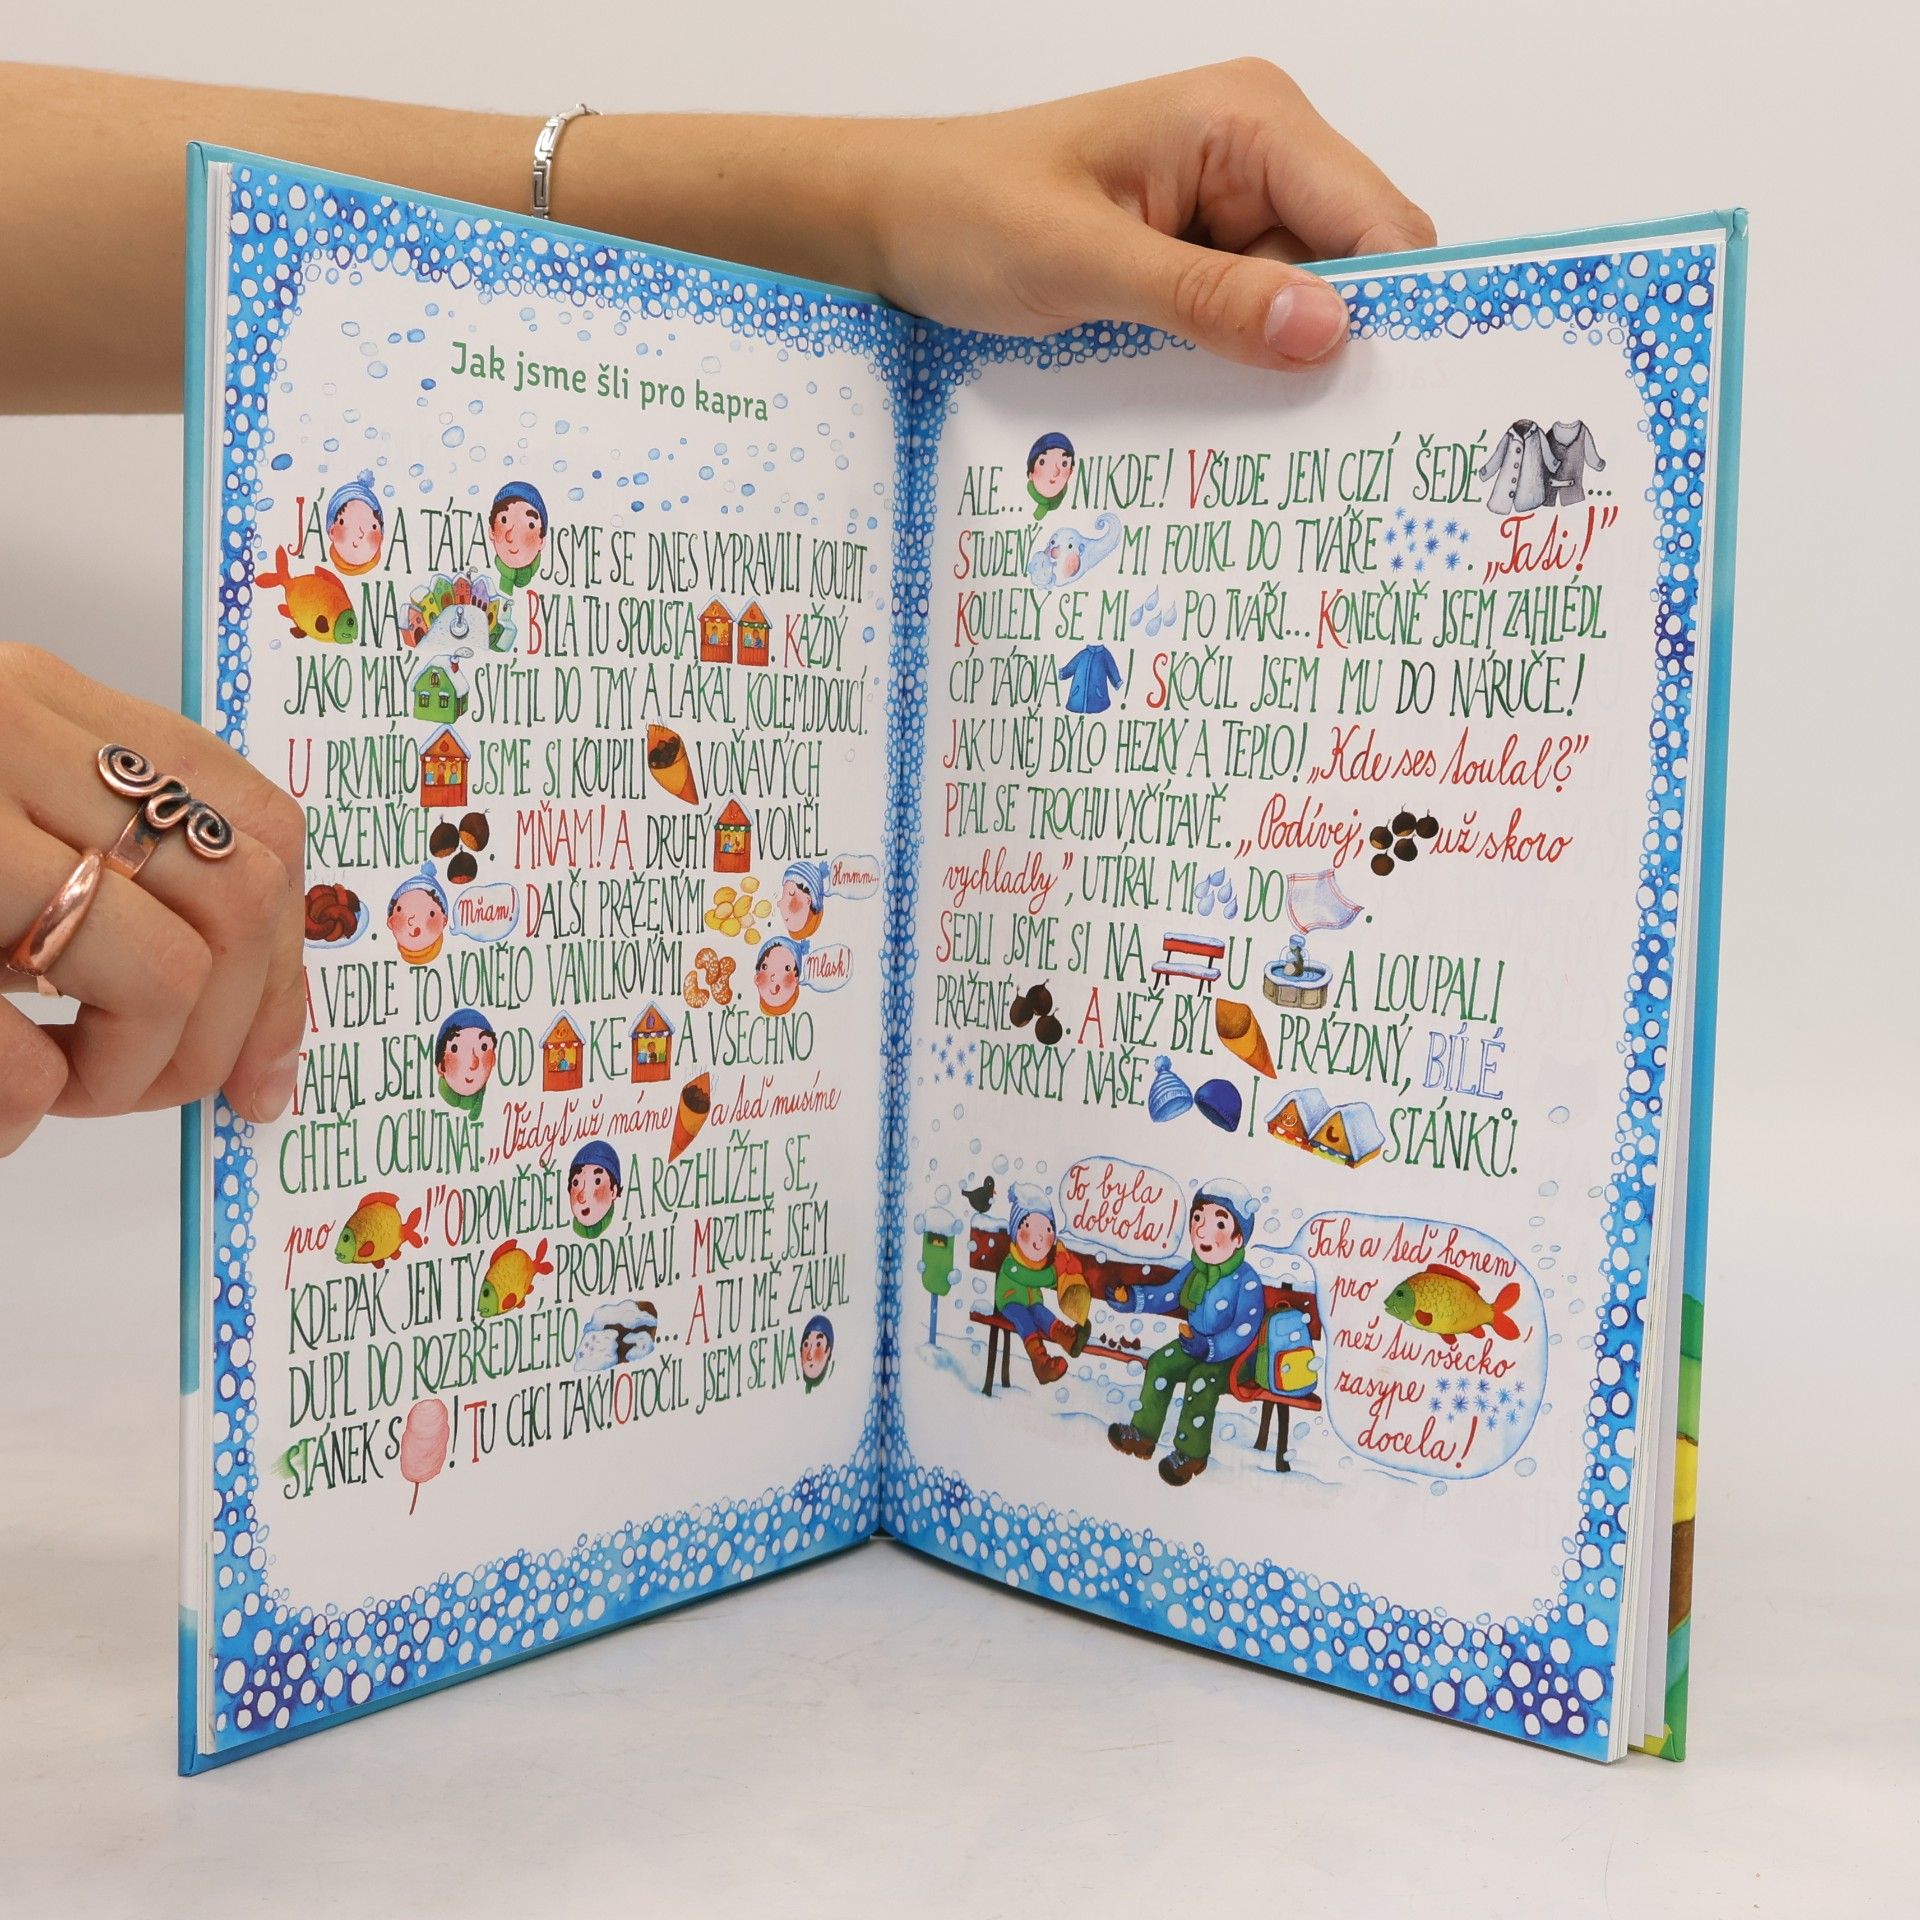 Jak jsme šli pro kapra
JÁ A TÁTA JSME SE DNES VYPRAVILI KOUPIT
NA . BYLA TU SPOUSTA . KAŽDÝ
JAKO MALÝ SVÍTIL DO TMY A LÁKAL KOLEMJDOUCÍ.
U PRVNÍHO JSME SI KOUPILI VOŇAVÝCH
PRAŽENÝCH . MŇAM! A DRUHÝ VONĚL
. Mňam! DALŠÍ PRAŽENÝMI . Hmmm...
A VEDLE TO VONĚLO VANILKOVÝMI . Mlask!
TAHAL JSEM OD KE A VŠECHNO
CHTĚL OCHUTNAT. „Vždyť už máme a teď musíme
pro !" ODPOVĚDĚL A ROZHLÍŽEL SE,
KDEPAK JEN TY PRODÁVAJÍ. MRZUTĚ JSEM
DUPL DO ROZBŘEDLÉHO ... A TU MĚ ZAUJAL
STÁNEK S ! TU CHCI TAKY! OTOČIL JSEM SE NA ,
ALE... NIKDE! VŠUDE JEN CIZÍ ŠEDÉ ...
STUDENÝ MI FOUKL DO TVÁŘE . „Tati!"
KOULELY SE MI PO TVÁŘI... KONEČNĚ JSEM ZAHLÉDL
CÍP TÁTOVA ! SKOČIL JSEM MU DO NÁRUČE!
JAK U NĚJ BYLO HEZKY A TEPLO! „Kde ses toulal?"
PTAL SE TROCHU VYČÍTAVĚ. „Podívej, už skoro
vychladly", UTÍRAL MI DO .
SEDLI JSME SI NA U A LOUPALI
PRAŽENÉ . A NEŽ BYL PRÁZDNÝ, BÍLÉ
POKRYLY NAŠE I STÁNKŮ.
To byla
dobrota!
Tak a teď honem
pro ,
než tu všecko
zasype
docela!